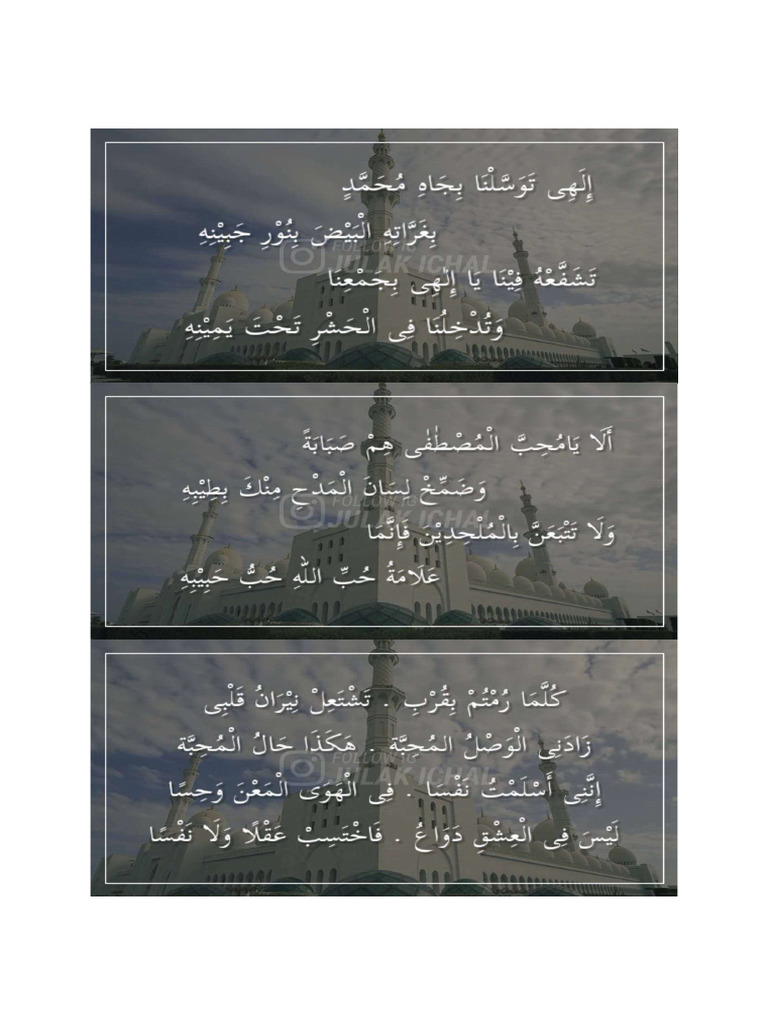 إِلَهِى تَوَسَّلْنَا بِجَاهِ مُحَمَّدٍ
بِغَرَّاتِهِ الْبَيْضَ بِنُوْرِ جَبِيْنِهِ
FOLLOW IG
JULAK ICHAL
تَشَفَّعْهُ فِيْنَا يَا إِلٰهِى بِجَمْعِنَا
وَتُدْخِلُنَا فِى الْحَشْرِ تَحْتَ يَمِيْنِهِ
أَلَا يَامُحِبَّ الْمُصْطَفٰى هِمْ صَبَابَةً
وَضَمِّخْ لِسَانَ الْمَدْحِ مِنْكَ بِطِيْبِهِ
FOLLOW IG
JULAK ICHAL
وَلَا تَتْبَعَنَّ بِالْمُلْحِدِيْنَ فَإِنَّمَا
عَلَامَةُ حُبِّ اللهِ حُبُّ حَبِيْبِهِ
كُلَّمَا رُمْتُمْ بِقُرْبِ . تَشْتَعِلْ نِيْرَانُ قَلْبِى
زَادَنِى الْوَصْلُ المُحِبَّةِ . هَكَذَا حَالُ الْمُحِبَّة
FOLLOW IG
JULAK ICHAL
إِنَّنِى أَسْلَمْتُ نَفْسَا . فِى الْهَوَى الْمَعْنَ وَحِسًا
لَيْسَ فِى الْعِشْقِ دَوَاعُ . فَاخْتَسِبْ عَقْلًا وَلَا نَفْسًا